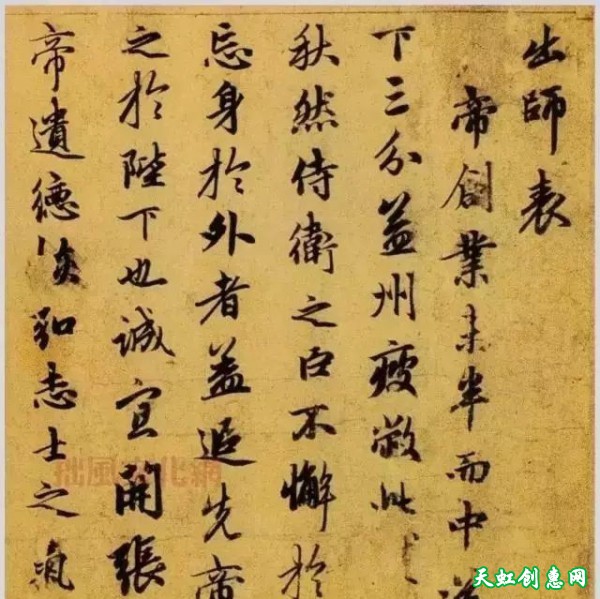 出師表
帝創業未半而中道
下三分益州疲敝此
秋然侍衛之臣不懈於
忘身於外者蓋追先帝
之於陛下也誠宜開張
帝遺德恢弘志士之氣
拙風文化網
天虹创惠网